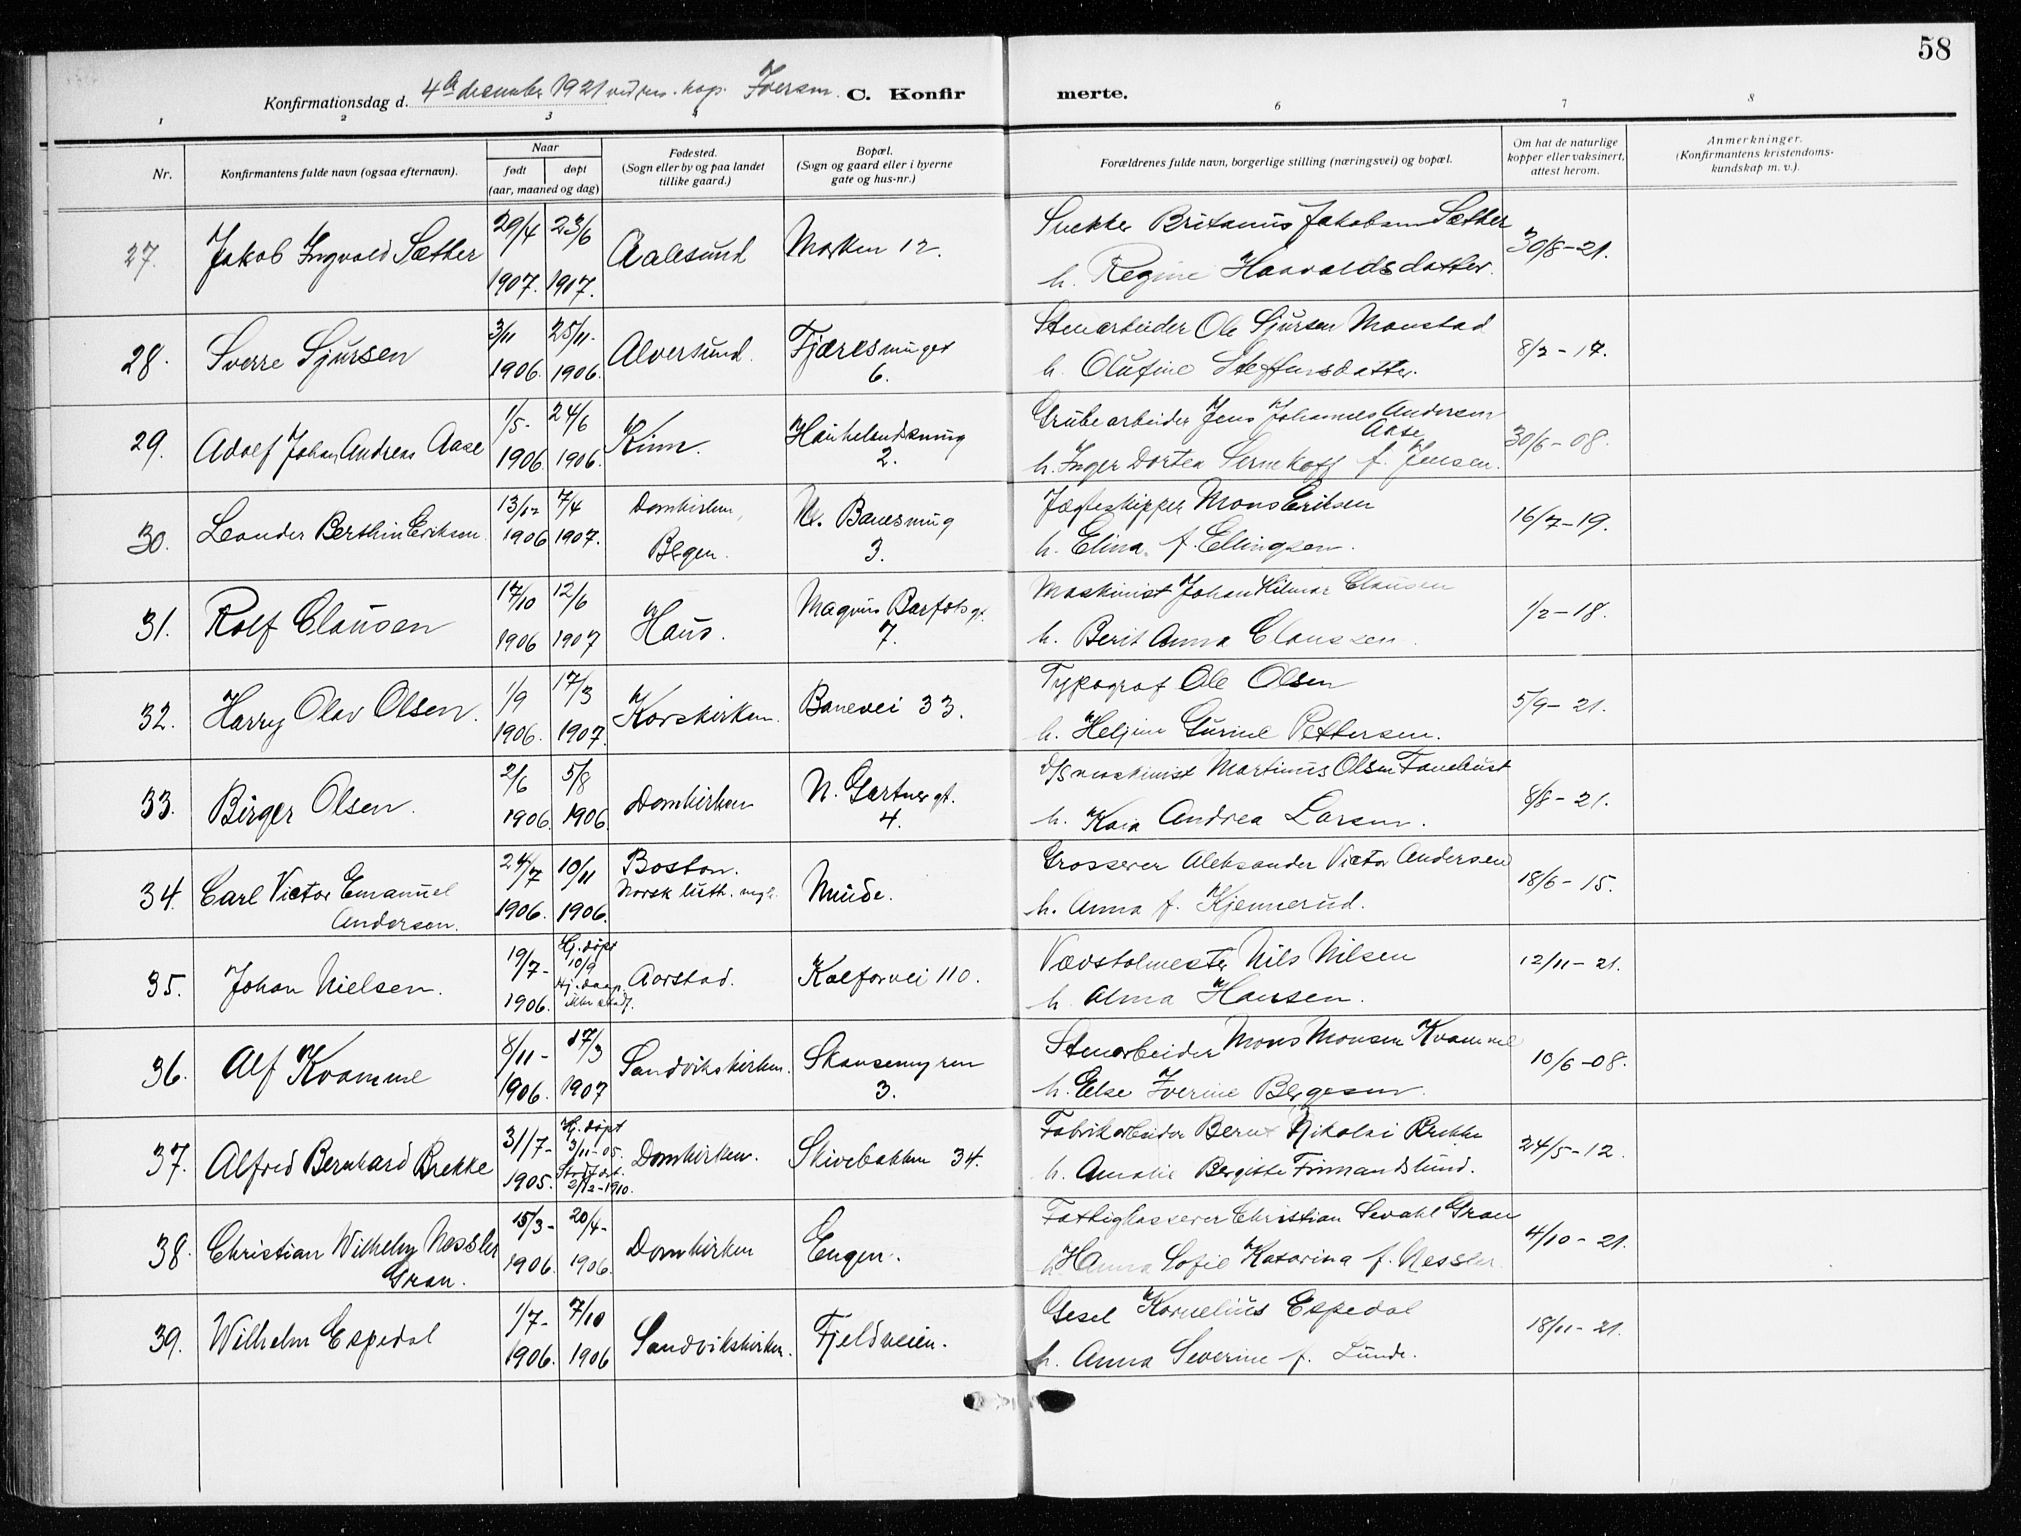 58
Konfirmationsdag d. 4de desember 1921 ved res. kap. Iversen. C. Konfirmerte.
1 2 3 4 5 6 7 8
Nr. Konfirmantens fulde navn (ogsaa efternavn). Naar født døpt (aar, maaned og dag) Fødested. (Sogn eller by og paa landet tillike gaard.) Bopæl. (Sogn og gaard eller i byerne gate og hus-nr.) Forældrenes fulde navn, borgerlige stilling (næringsvei) og bopæl. Om hat de naturlige kopper eller vaksinert, attest herom. Anmerkninger. (Konfirmantens kristendoms-kundskap m. v.).
27. Jakob Ingvald Sæther 29/4 1907. 23/6 1907. Aalesund Marken 12. Snekker Britanus Jakobsen Sæther
h. Regine Haavaldsdatter. 30/8-21.
28. Sverre Sjursen 3/11 1906. 25/11. 1906. Alversund. Fjæresmuget 6. Stenarbeider Ole Sjursen Monstad
h. Olufine Steffensdatter. 8/2-17.
29. Adolf Johan Andreas Aase 1/5- 1906. 24/6 1906. Kinn. Haukelandsmug 2. Grubearbeider Jens Johannes Andersen Aase
h. Inger Dortea f. Jensen. 30/6-08.
30. Leander Berthin Eriksen. 13/12 1906 7/4 1907. Domkirken, Bergen. N. Banesmug 3. Jægteskipper Mons Eriksen
h. Elina f. Ellingsen. 16/7-19.
31. Rolf Clausen 17/10 1906 12/6 1907 Haus. Magnus Barfots gt. 7. Maskinist Johan Hilmar Clausen
h. Berit Anna Claussen. 1/2-18.
32. Harry Olav Olsen. 1/9 1906. 17/3 1907. Korskirken. Banevei 33. Typograf Ole Olsen
h. Heljine Gurine Pettersen. 5/9-21.
33. Birger Olsen. 2/6 1906. 5/8 1906. Domkirken N. Gartnergt. 4. d/s maskinist Martinus Olsen Tanebust
h. Kaia Andrea Larsen. 8/8-21.
34. Carl Victor Emanuel Andersen. 24/7 1906. 10/11 1906. Boston. Norsk luth. mgh. Minde. Grosserer Aleksander Victor Andersen
h. Anna f. Kjennerud. 18/6-15.
35. Johan Nielsen. 19/7- 1906. Hj. døpt 10/9 Hj. daap ikke stadf. Aarstad. Kalfarvei 110. Vævstolmester Nils Nilsen
h. Alma Hansen. 12/11-21.
36. Alf Kvamme 8/11- 1906. 17/3 1907 Sandvikskirken. Skansemyren 3. Stenarbeider Mons Monsen Kvamme
h. Else Iverine Bergesen. 10/6-08.
37. Alfred Bernhard Brekke 31/7- 1905. Hj. døpt 3/11-05. Stadf. d. 2/12-1910. Domkirken. Skivebakken 34. Fabrikarbeider Bernt Nikolai Brekke
h. Amalie Bergitte Finmandslund. 24/5-12.
38. Christian Wilhelm Nessler Gran. 15/3- 1906. 20/4- 1906. Domkirken Engen. Fattigkasserer Christian Sevahl Gran
h. Hanna Sofie Katarina f. Nessler. 4/10-21.
39. Wilhelm Espedal 1/7- 1906. 7/10 1906 Sandvikskirken. Fjeldveien. Gesel Kornelius Espedal
h. Anna Severine f. Lunde. 18/11-21.